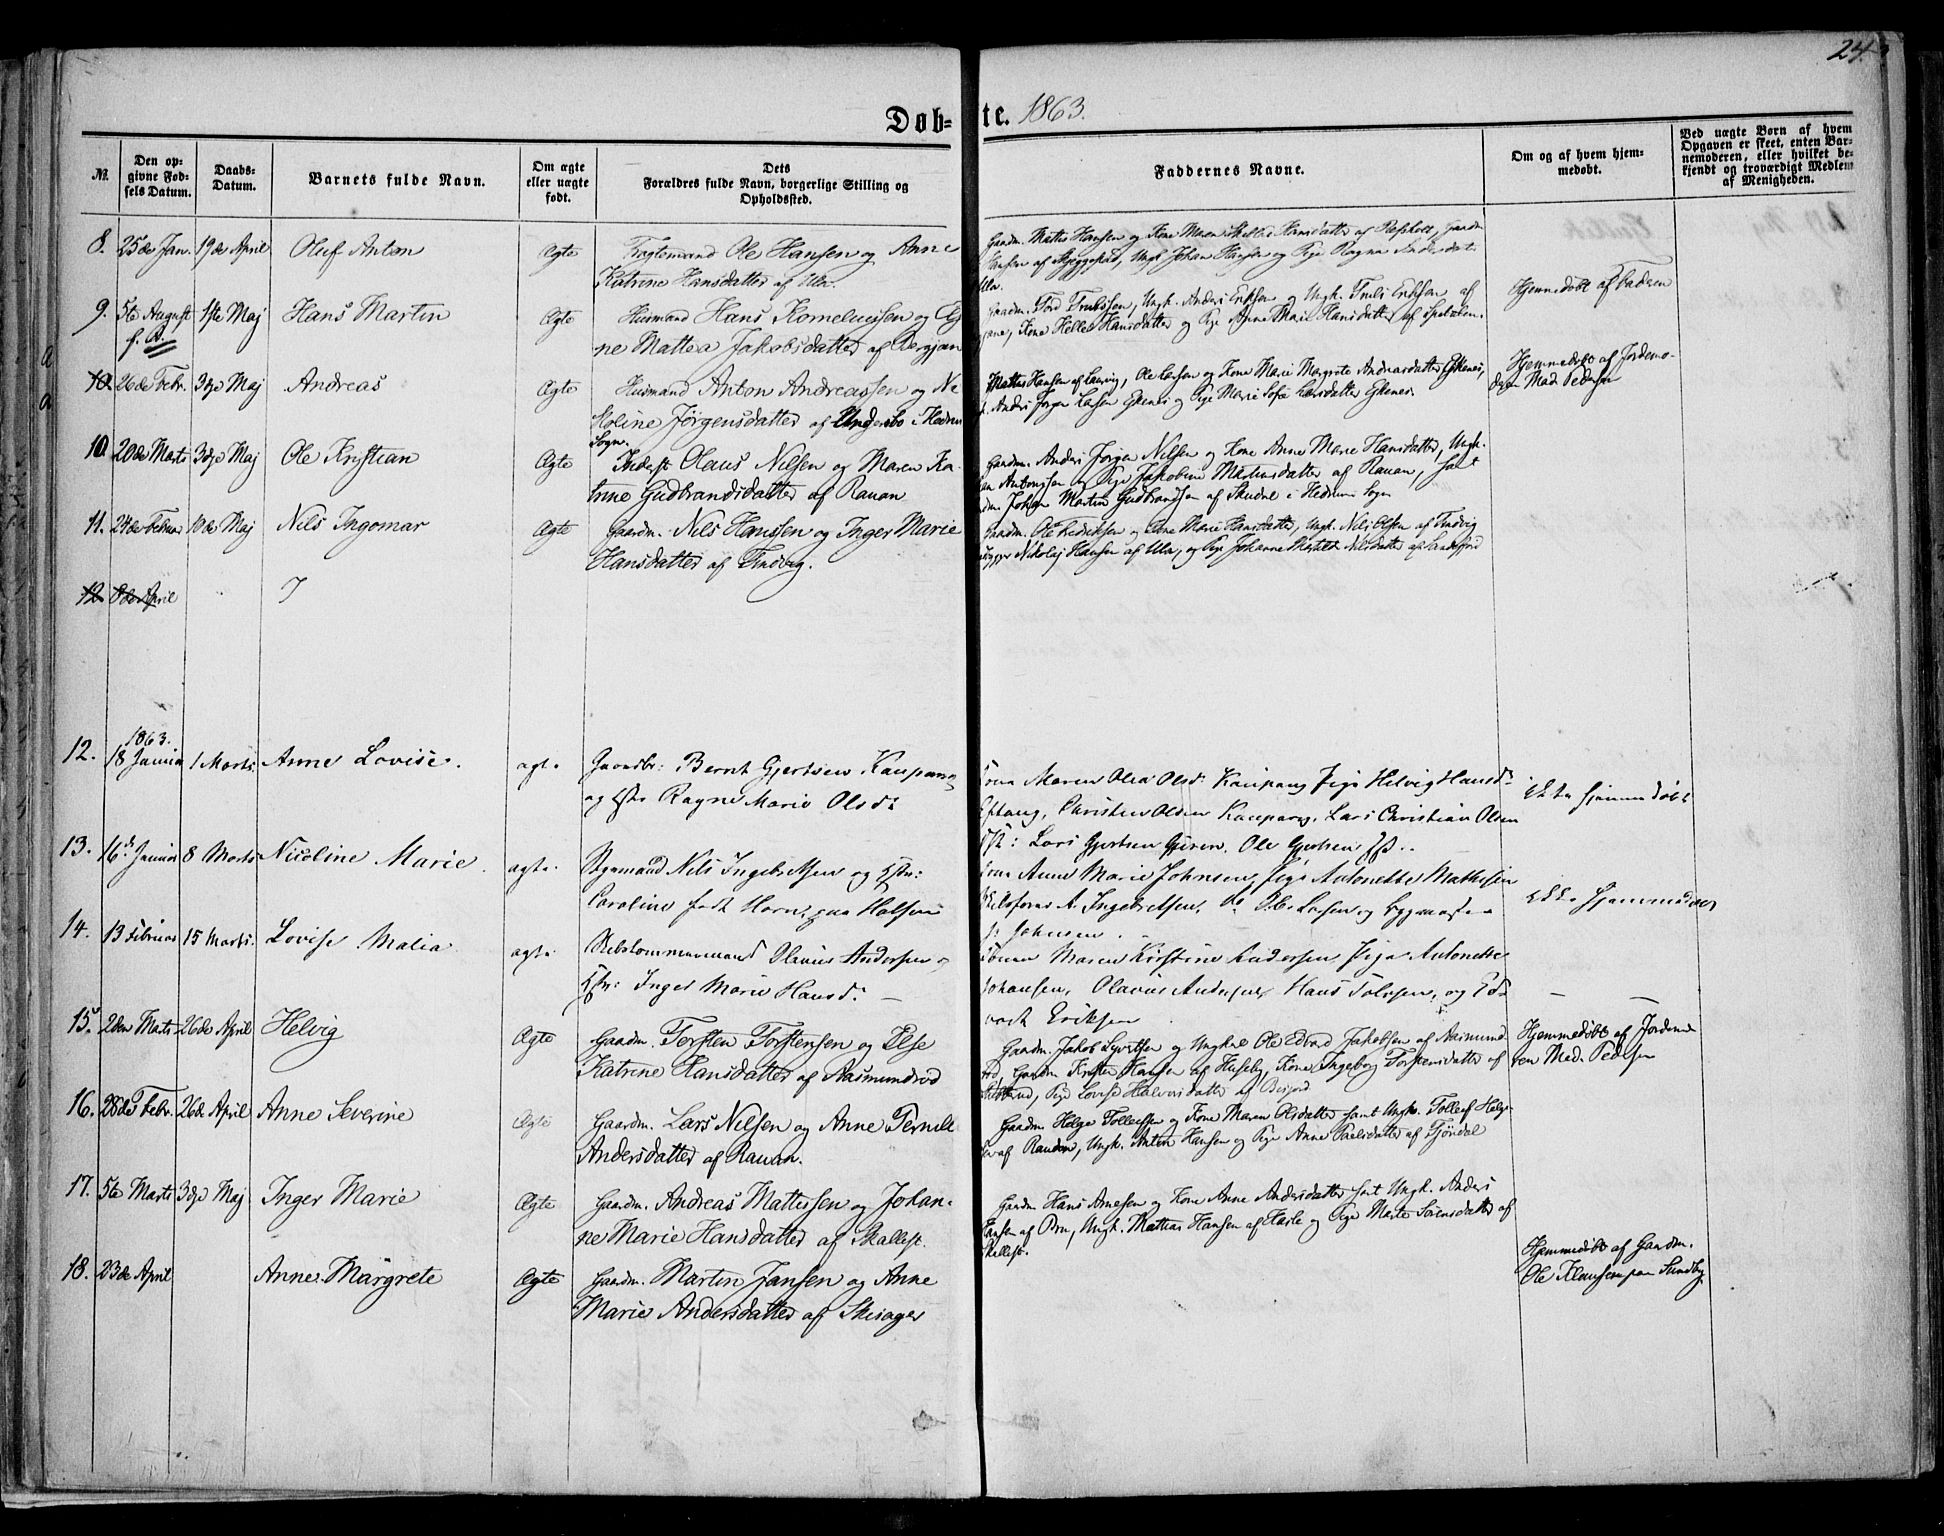 24.
Døb= te. 1863.
№.
Den op=
givne Fød=
sels Datum.
Daabs=
Datum.
Barnets fulde Navn.
Om ægte
eller uægte
født.
Dets
Forældres fulde Navn, borgerlige Stilling og
Opholdssted.
Faddernes Navne.
Om og af hvem hjem=
medøbt.
Ved uægte Børn af hvem
Opgaven er skeet, enten Bar=
nemoderen, eller hvilket be=
kjendt og troværdigt Medlem
af Menigheden.
8. 25de Jan. 19de April Oluf Anton Ægte Fragtemand Ole Hansen og Anne
Katrine Hansdatter af Ula.
Gaardm. Mattis Hansen og Kone Maren Hansdatter af
Hansen af Ungk. Johan Hansen og Pige Ragna Andersdat
Ula.
9. 5te August 1ste Maj Hans Martin Ægte Husmand Hans Korneliussen og
f. A.
ne Mattea Jakobsdatter af Bergan
Gaardm. Tord Trulsen, Ungk. Anders Eriksen og Ungk. Truls Eriksen af
Kone Helle Hansdatter og Pige Anne Marie Hansdatter af
Hjemmedøbt af Faderen
10. 26de Febr. 3die Maj Andreas Ægte Husmand Anton Andreassen og Ni
koline Jørgensdatter af Ungersbo i Hedrum
Sogn.
Mattis Hansen af Laurvig, Ole Larsen og Kone Marie Margrete Andreasdatter Ekenes,
Anders Jørgen Larsen Ekenes og Pige Marie Sofie Larsdatter Ekenes.
Hjemmedøbt af Jordemo-
deren Mad. Pedersen
10. 20de Marts 3die Maj Ole Kristian Ægte Inderst Olaus Nilsen og Maren Ka-
trine Gudbrandsdatter af Rauan
Gaardm. Anders Jørgen Nilsen og Kone Anne Marie Hansdatter, Ungk.
Antonsen og Pige Jakobine Martinsdatter af Rauan, samt
Johan Martin Gudbrandsen af Skudne i Hedrum Sogn
11. 24de Februar 10de Maj Nils Ingomar Ægte Gaardm. Nils Hanssen og Inger Marie
Hansdatter af Tindvig.
Gaardm. Ole Fredriksen og Kone Maria Hansdatter, Ungk. Nils Olsen af Tindvig
Nikolaj Hansen af Ula, og Pige Johanne Matilde Nilsdatter af Sandefjord
12 8de April J
1863.
12. 18 Januar 1 Marts. Anne Lovise. ægte Gaardbr: Bernt Gjertsen Kaupang
og Hstr Ragne Marie Olsd:
Kona Maren Olea Olsd: Kaupang, Pige Helvig Hansd:
Eftang, Christen Olsen Kaupang, Lars Christian Olsen
Lars Gjertsen Gjeren, Ole Gjertsen
ikke hjemmedøbt
13. 16de Januar 8 Marts Nicoline Marie. ægte Styrmand Nils Ingebretsen og Hstr:
Caroline født Horn, paa Halsen
Kona Anne Marie Johnsen, Pige Antonette Mathisen
Skibsfører A. Ingebretsen, do O. Larsen og Bygmester
Johnsen.
ikke hjemmedøbt
14. 13 Februar 15 Marts. Lovise Malia ægte Skibstømmermand Olavus Andersen og
Hstr: Inger Marie Hansd: —
Konen Maren Kirstine Andersen, Pige Antonette
Johansen, Olavus Andersen, Hans Tolvsen, og Ed
vart Eriksen
— —
15. 2den Marts 26de April Helvig Ægte Gaardm. Torsten Torstensen og Else
Katrine Hansdatter af Aasmundrød
Gaardm. Jakob Syvertsen og Ungkal Ole Edvard Jakobsen af Aasmund
rød, Gaardm Kristen Hansen af Huseby, Kone Ingeborg Torstensdatter af
Pige Lovise Halvorsdatter af
Hjemmedøbt af Jordemo
ren Mad. Pedersen
16. 28de Febr. 26de April Anne Severine Ægte Gaardm. Lars Nilsen og Anne Pernille
Andersdatter af Rauan.
Gaardm Helge Tollefsen og Kone Maren Olsdatter samt Ungk. Tollef Helge
sen af Rauan, Ungk. Anton Hansen og Pige Anne Paulsdatter af Tjøndal
17. 5te Marts 3die Maj Inger Marie Ægte Gaardm. Andreas Mattissen og Johan-
ne Marie Hansdatter af Skallest.
Gaardm Hans Arnesen og Kone Anne Andersdatter samt Ungk. Anders
Hansen af Ono, Ungk. Mathias Hansen af Hasle og Pige Marte Sørensdatter af
Skallest.
18. 23de April Anne Margrete Ægte Gaardm. Martin Jansen og Anne
Marie Andersdatter af Skisager
Hjemmedøbt af Gaardm.
Ole Klausen paa Sundby.